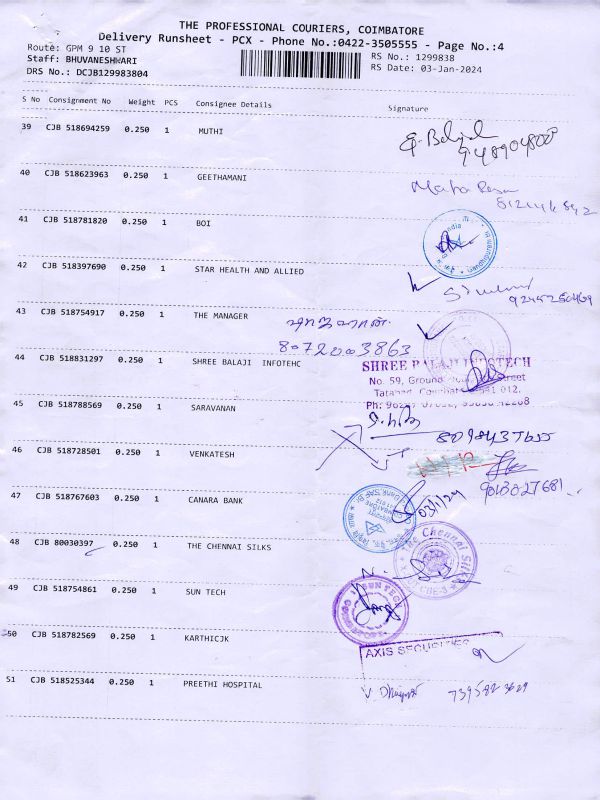 THE PROFESSIONAL COURIERS, COIMBATORE
Delivery Runsheet - PCX - Phone No.:0422-3505555 - Page No.:4
Route: GPM 9 10 ST
RS No.: 1299838
Staff: BHUVANESHWARI
RS Date: 03-Jan-2024
DRS No.: DCJB129983804
S No Consignment No Weight PCS Consignee Details Signature
39 CJB 518694259 0.250 1 MUTHI
40 CJB 518623963 0.250 1 GEETHAMANI
41 CJB 518781820 0.250 1 BOI
42 CJB 518397690 0.250 1 STAR HEALTH AND ALLIED
43 CJB 518754917 0.250 1 THE MANAGER
8072003863
44 CJB 518831297 0.250 1 SHREE BALAJI INFOTEHC
SHREE BALAJI INFOTECH
No. 59, Ground Street
45 CJB 518788569 0.250 1 SARAVANAN
46 CJB 518728501 0.250 1 VENKATESH
47 CJB 518767603 0.250 1 CANARA BANK
03/1/24
48 CJB 80030397 0.250 1 THE CHENNAI SILKS
The Chennai Silks
CBE-3
49 CJB 518754861 0.250 1 SUN TECH
SUN TECH
50 CJB 518782569 0.250 1 KARTHICJK
AXIS SECURITIES
51 CJB 518525344 0.250 1 PREETHI HOSPITAL